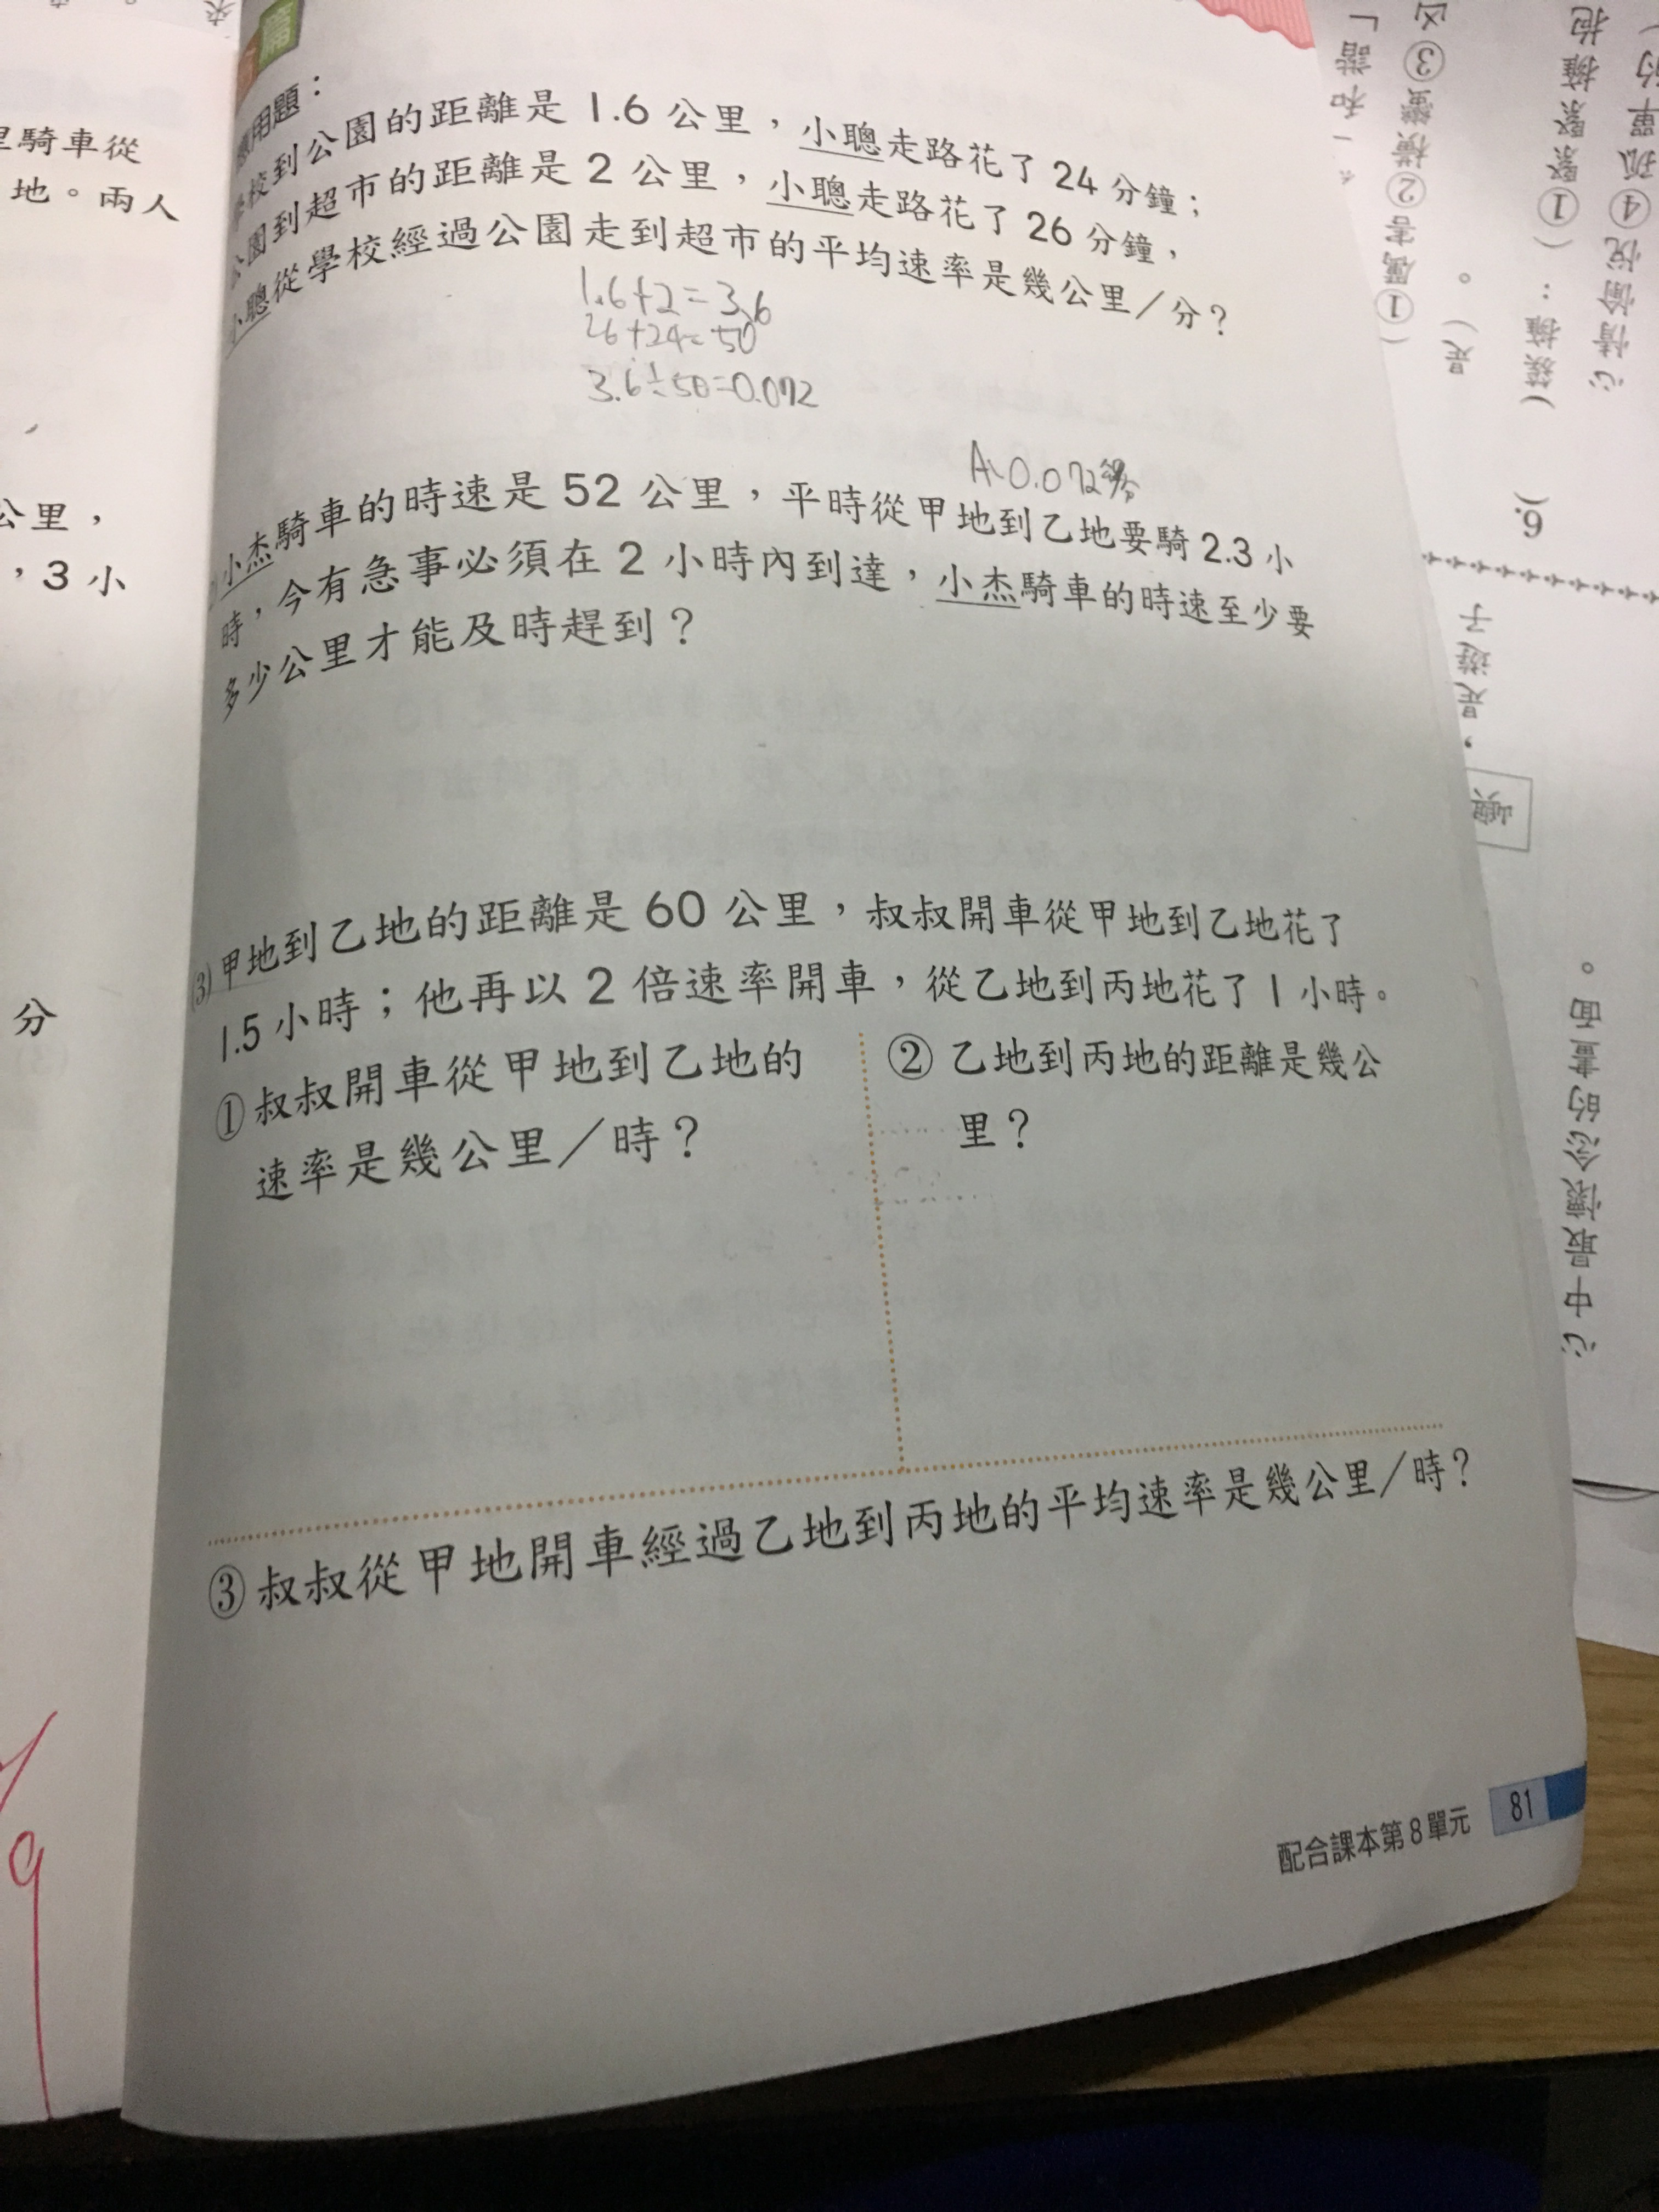 篇
應用題：
學校到公園的距離是 1.6 公里，小聰走路花了 24 分鐘；
公園到超市的距離是 2 公里，小聰走路花了 26 分鐘，
小聰從學校經過公園走到超市的平均速率是幾公里／分？
1.6+2=3.6
26+24=50
3.6÷50=0.072
A:0.072
小杰騎車的時速是 52 公里，平時從甲地到乙地要騎 2.3 小
時，今有急事必須在 2 小時內到達，小杰騎車的時速至少要
多少公里才能及時趕到？
(3) 甲地到乙地的距離是 60 公里，叔叔開車從甲地到乙地花了
1.5 小時；他再以 2 倍速率開車，從乙地到丙地花了 1 小時。
① 叔叔開車從甲地到乙地的
速率是幾公里／時？
② 乙地到丙地的距離是幾公
里？
③ 叔叔從甲地開車經過乙地到丙地的平均速率是幾公里／時？
配合課本第 8 單元
81
騎車從
地。兩人
公里，
，3 小
分
9
①厲害②橫蠻③凶
是（
。
（簇擁：）①緊緊擁抱
心情愉悅④孤單的
6.
，是遊子
心中最懷念的畫面。